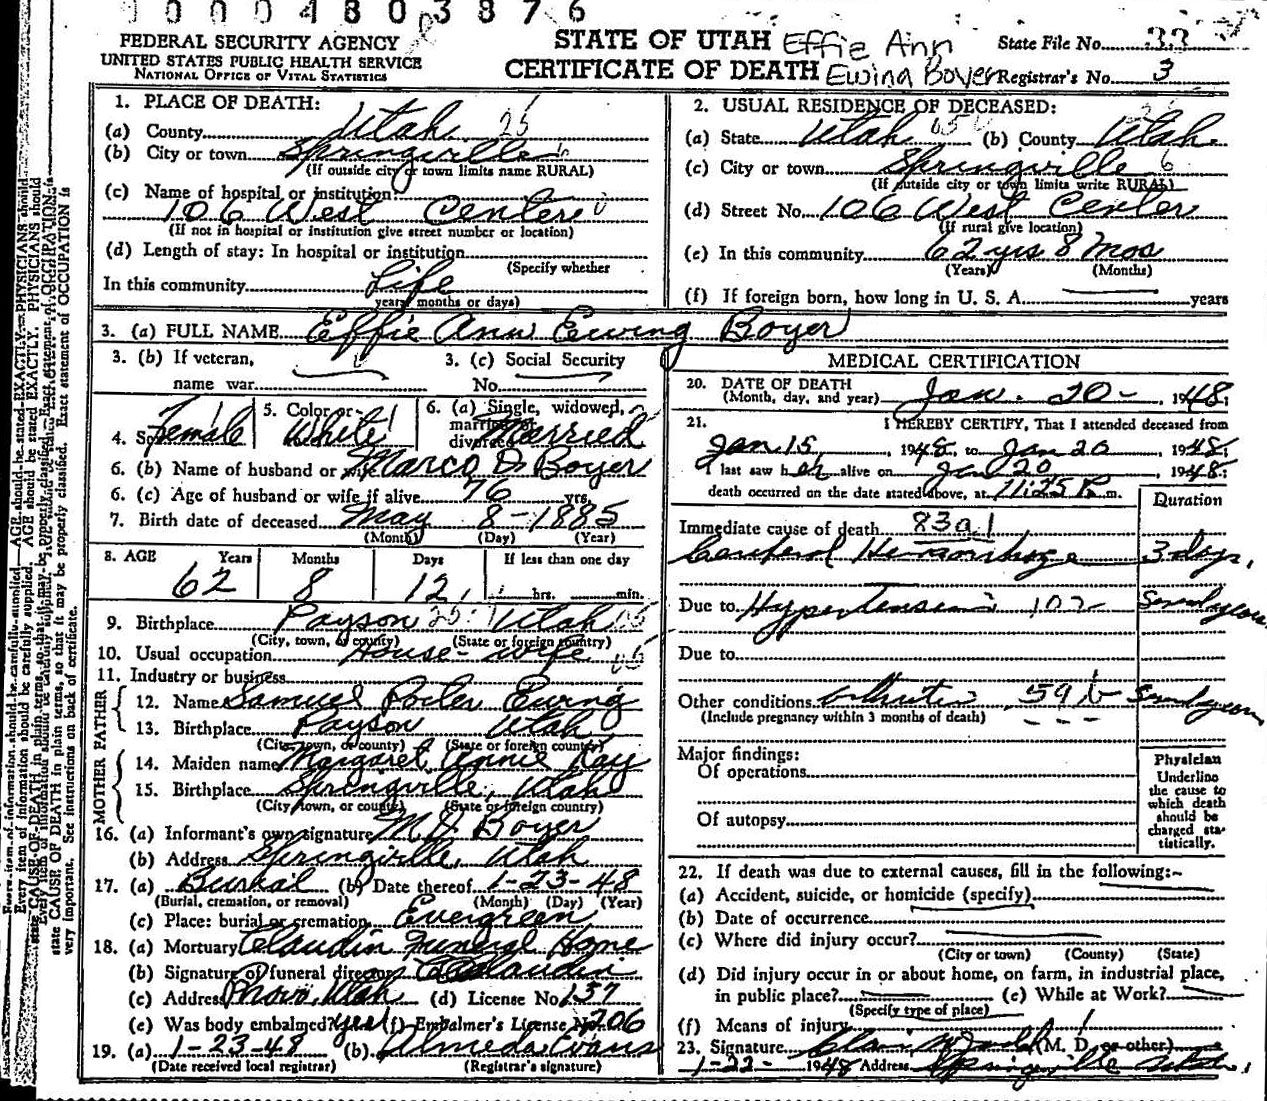 00004803876
FEDERAL SECURITY AGENCY
UNITED STATES PUBLIC HEALTH SERVICE
NATIONAL OFFICE OF VITAL STATISTICS
STATE OF UTAH Effie Ann
CERTIFICATE OF DEATH Ewing Boyer
State File No. 33
Registrar's No. 3
1. PLACE OF DEATH:
(a) County Utah 25
(b) City or town Springville
(If outside city or town limits name RURAL)
(c) Name of hospital or institution:
106 West Center
(If not in hospital or institution give street number or location)
(d) Length of stay: In hospital or institution
(Specify whether
In this community Life
years, months or days)
2. USUAL RESIDENCE OF DECEASED:
(a) State Utah (b) County Utah
(c) City or town Springville 6
(If outside city or town limits write RURAL)
(d) Street No. 106 West Center
(If rural give location)
(e) In this community 62 yrs 8 Mos
(Years) (Months)
(f) If foreign born, how long in U. S. A. years
3. (a) FULL NAME Effie Ann Ewing Boyer
3. (b) If veteran,
name war
3. (c) Social Security
No.
4. Sex Female
5. Color or White
6. (a) Single, widowed, married or divorced Married
6. (b) Name of husband or wife Marco D. Boyer
6. (c) Age of husband or wife if alive 76 yrs.
7. Birth date of deceased May 8-1885
(Month) (Day) (Year)
8. AGE Years Months Days If less than one day
62 8 12 hrs. min.
9. Birthplace Payson Utah
(City, town, or county) (State or foreign country)
10. Usual occupation House-wife
11. Industry or business
FATHER
12. Name Samuel Porter Ewing
13. Birthplace Payson Utah
(City, town, or county) (State or foreign country)
MOTHER
14. Maiden name Margaret Annie Kay
15. Birthplace Springville, Utah
(City, town, or county) (State or foreign country)
16. (a) Informant's own signature M. D. Boyer
(b) Address Springville, Utah
17. (a) Burial (b) Date thereof 1-23-48
(Burial, cremation, or removal) (Month) (Day) (Year)
(c) Place: burial or cremation Evergreen
18. (a) Mortuary Claudin Funeral Home
(b) Signature of funeral director Claudin
(c) Address Provo, Utah (d) License No. 137
(e) Was body embalmed? yes (f) Embalmer's License No. 206
19. (a) 1-23-48 (b) Almeda Evans
(Date received local registrar) (Registrar's signature)
MEDICAL CERTIFICATION
20. DATE OF DEATH
(Month, day, and year) Jan. 20-, 1948.
21. I HEREBY CERTIFY, That I attended deceased from
Jan 15, 1948, to Jan 20 1948.
I last saw her alive on Jan 20 1948.
death occurred on the date stated above, at 11:25 P. m.
Duration
Immediate cause of death 83a1
Cerebral Hemorrhage 3 days,
Due to Hypertension 102 Several years
Due to
Other conditions 59b Several years
(Include pregnancy within 3 months of death)
Major findings:
Of operations
Of autopsy
Physician
Underline
the cause to
which death
should be
charged sta-
tistically.
22. If death was due to external causes, fill in the following:-
(a) Accident, suicide, or homicide (specify)
(b) Date of occurrence
(c) Where did injury occur?
(City or town) (County) (State)
(d) Did injury occur in or about home, on farm, in industrial place,
in public place? (e) While at Work?
(Specify type of place)
(f) Means of injury
23. Signature (M. D. or other)
1-22- 1948 Address Springville Utah
CAUSE OF DEATH in plain terms, so that it may be properly classified. Exact statement of OCCUPATION is
very important. See instructions on back of certificate.